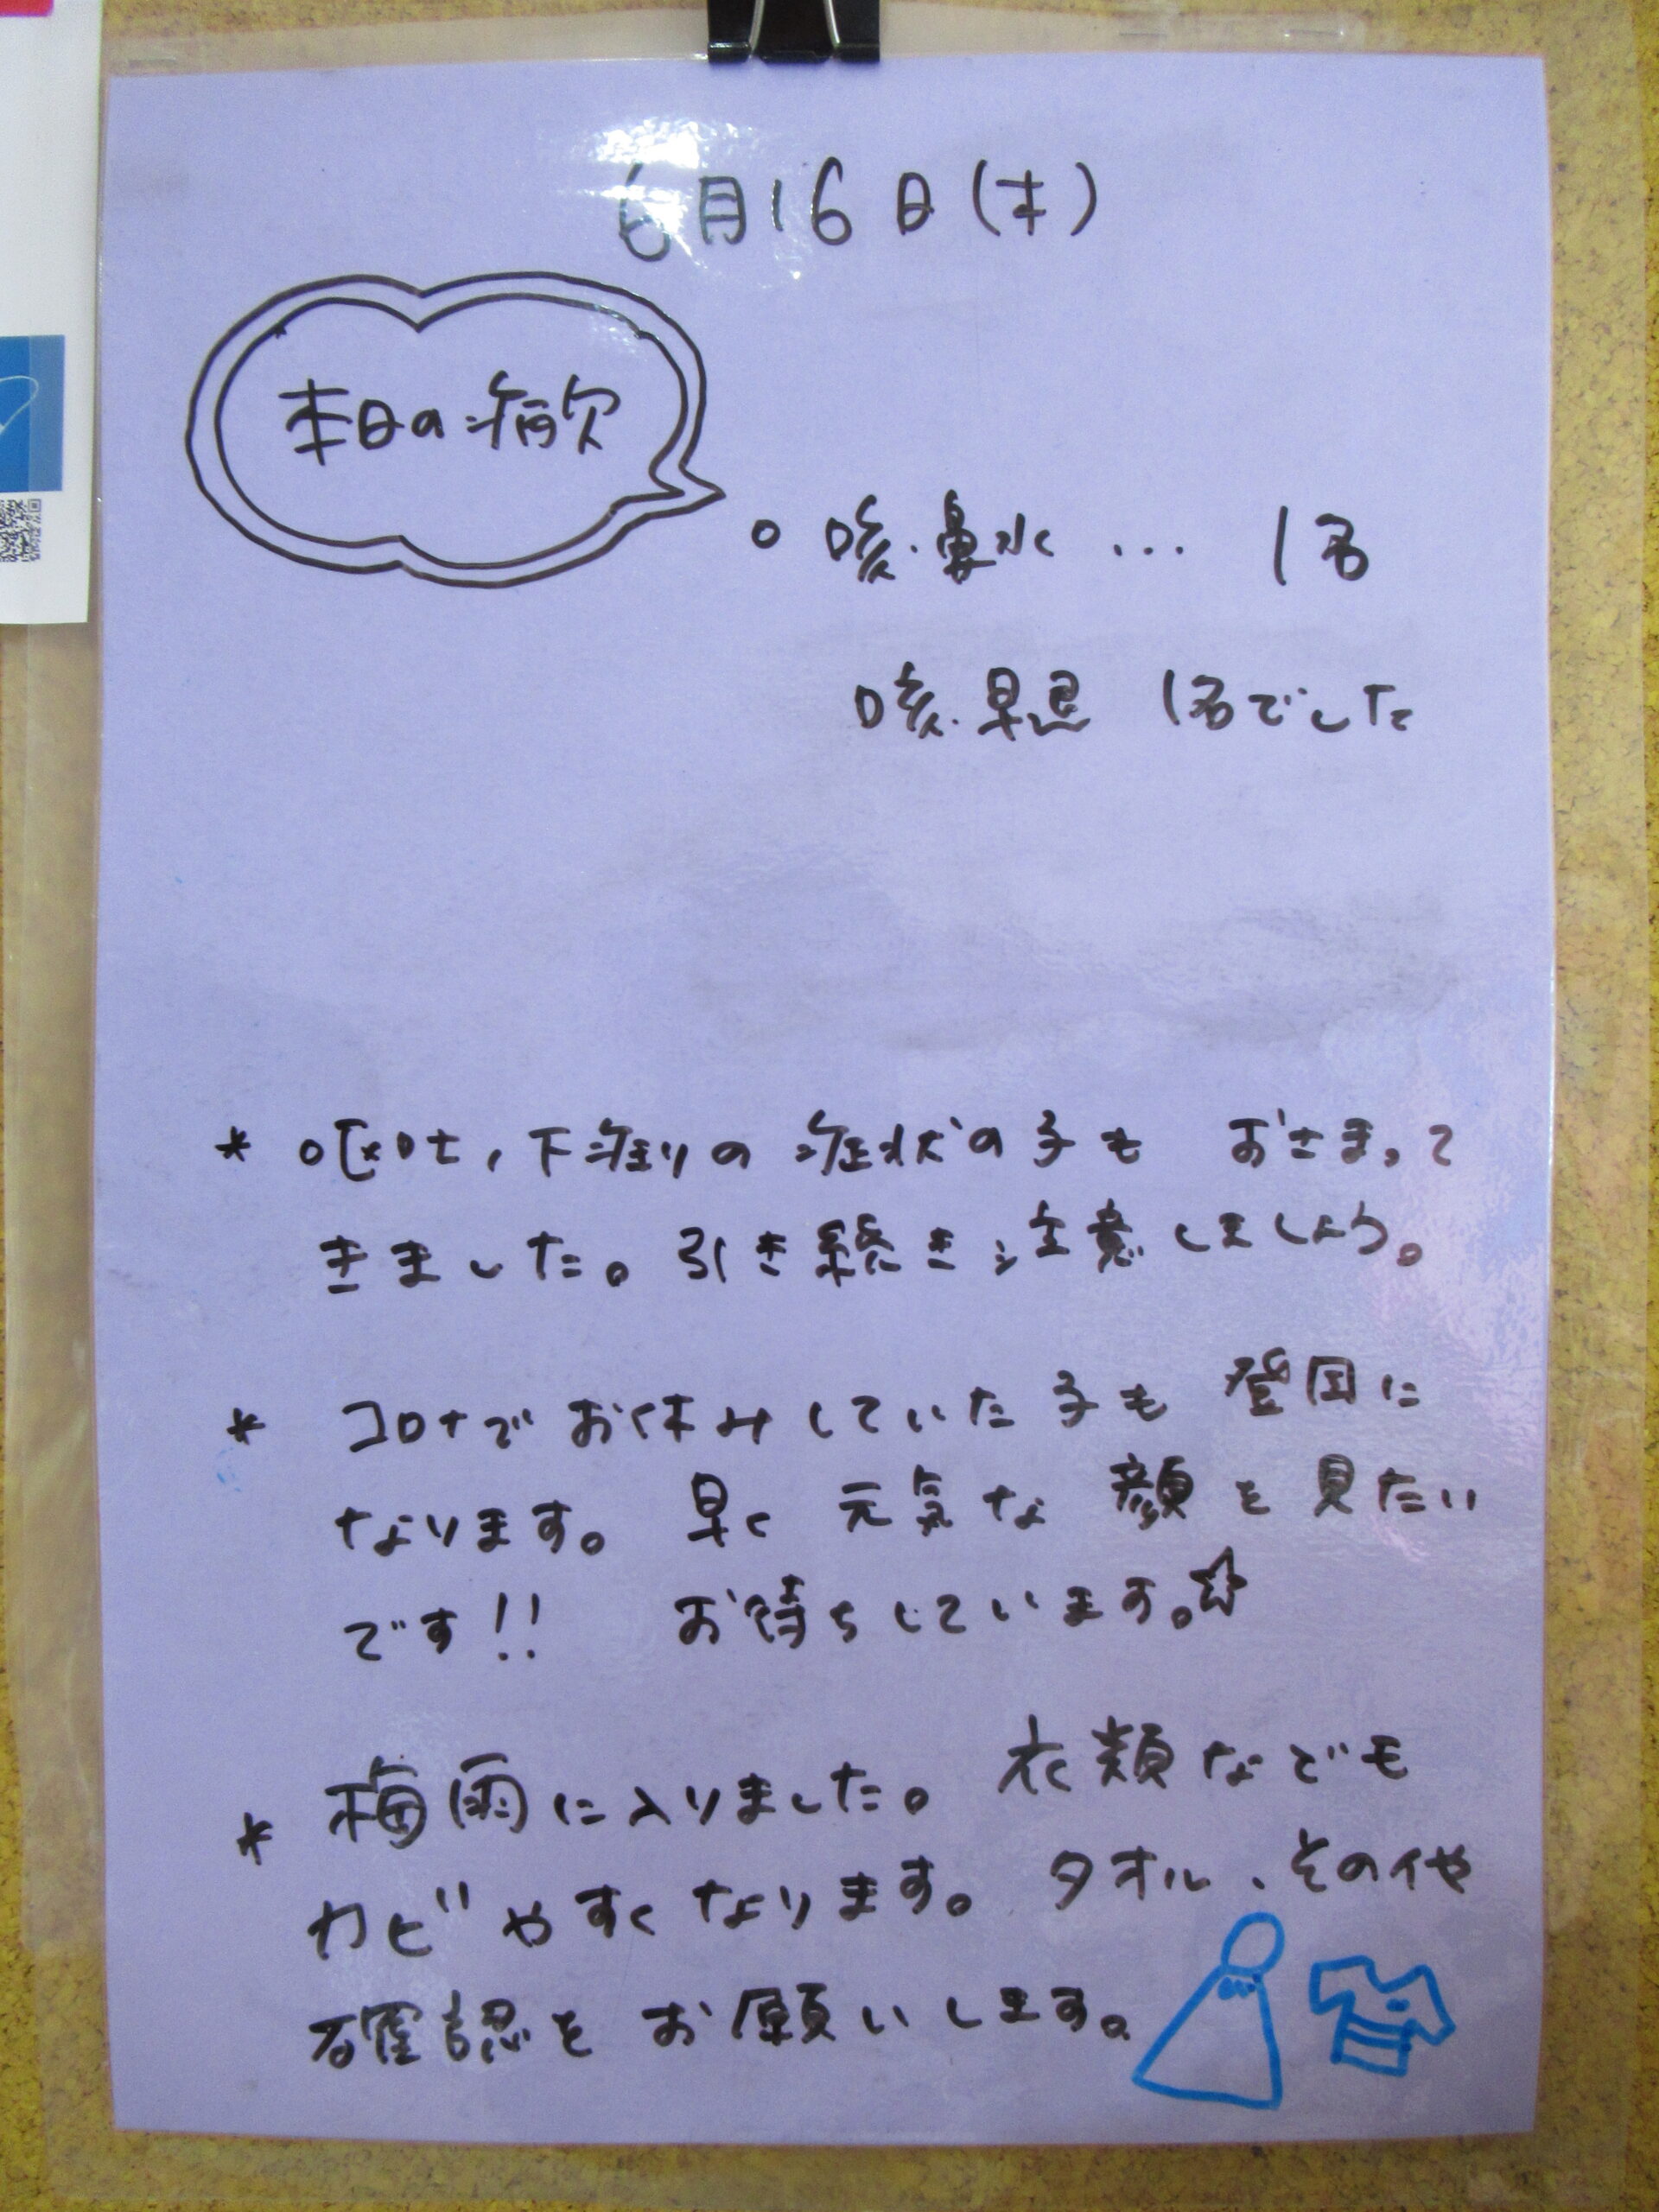 6月16日(木)
本日の病欠
○ 咳・鼻水 … 1名
咳・早退 1名でした
* 嘔吐、下痢の症状の子も おさまって
きました。引き続き注意しましょう。
* コロナでお休みしていた子も登園に
なります。早く元気な顔を見たい
です!! お待ちしています。☆
* 梅雨に入りました。衣類なども
カビやすくなります。タオル、その他
確認をお願いします。